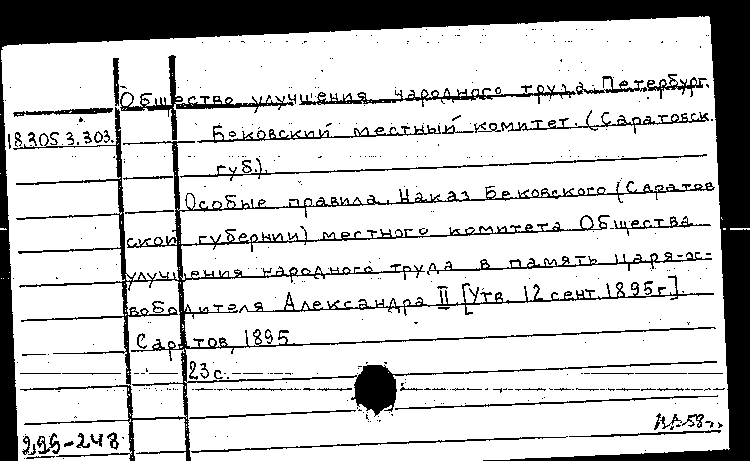 Общество улучшения народного труда. Петербург.
18.305.3.303.
Бековский местный комитет. (Саратовск.
губ.).
Особые правила. Наказ Бековского (Саратов
ской губернии) местного комитета Общества
улучшения народного труда в память царя-ос=
вободителя Александра II [Утв. 12 сент. 1895 г.].
Саратов, 1895.
23 с.
295-248